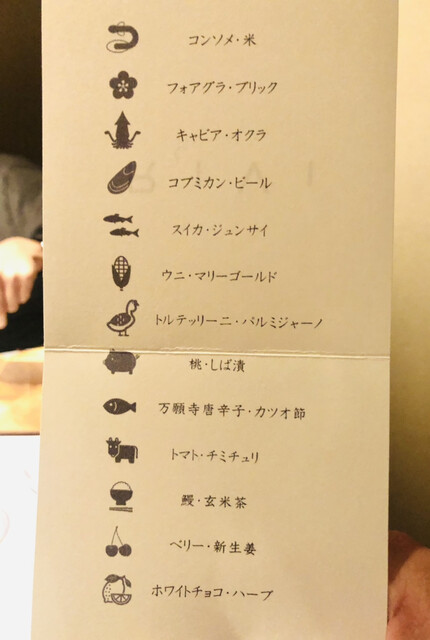 コンソメ・米
フォアグラ・ブリック
キャビア・オクラ
コブミカン・ビール
スイカ・ジュンサイ
ウニ・マリーゴールド
トルテッリーニ・パルミジャーノ
桃・しば漬
万願寺唐辛子・カツオ節
トマト・チミチュリ
鰻・玄米茶
ベリー・新生姜
ホワイトチョコ・ハーブ